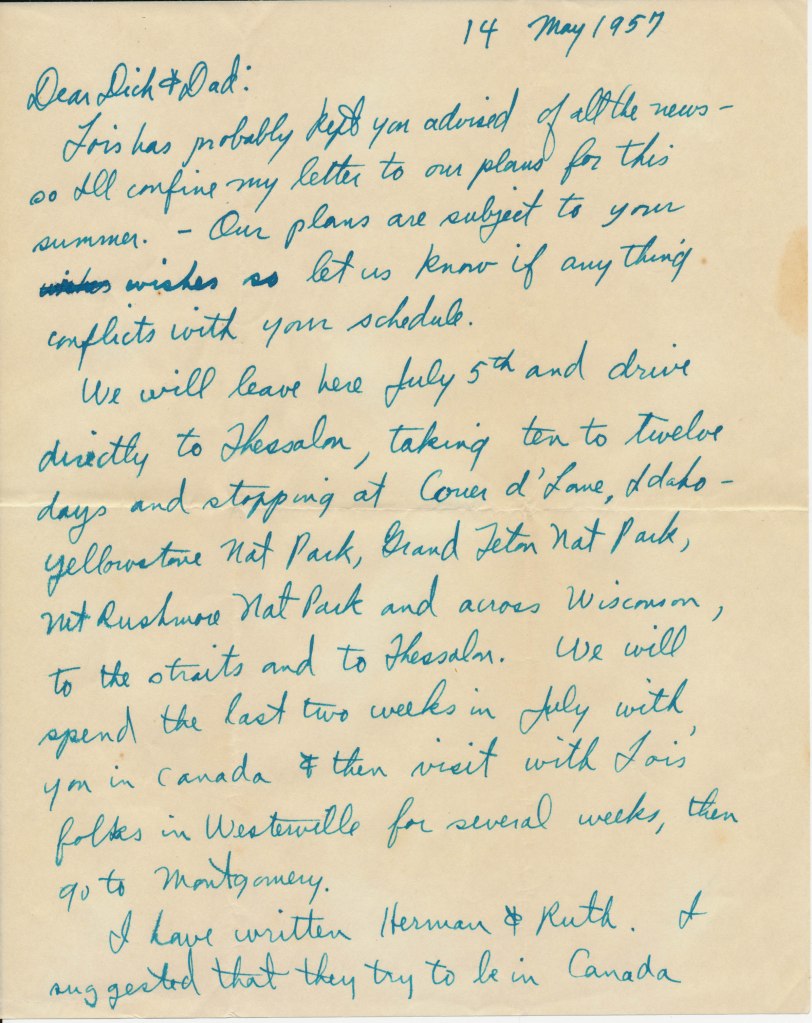 14 May 1957
Dear Dick & Dad:
Lois has probably kept you advised of all the news -
so I'll confine my letter to our plans for this
summer. - Our plans are subject to your
wishes wishes so let us know if any thing
conflicts with your schedule.
We will leave here July 5th and drive
directly to Thessalon, taking ten to twelve
days and stopping at Couer d'Lane, Idaho -
Yellowstone Nat Park, Grand Teton Nat Park,
Mt Rushmore Nat Park and across Wisconson,
to the straits and to Thessalon. We will
spend the last two weeks in July with
you in Canada & then visit with Lois'
folks in Westerville for several weeks, then
go to Montgomery.
I have written Herman & Ruth. I
suggested that they try to be in Canada